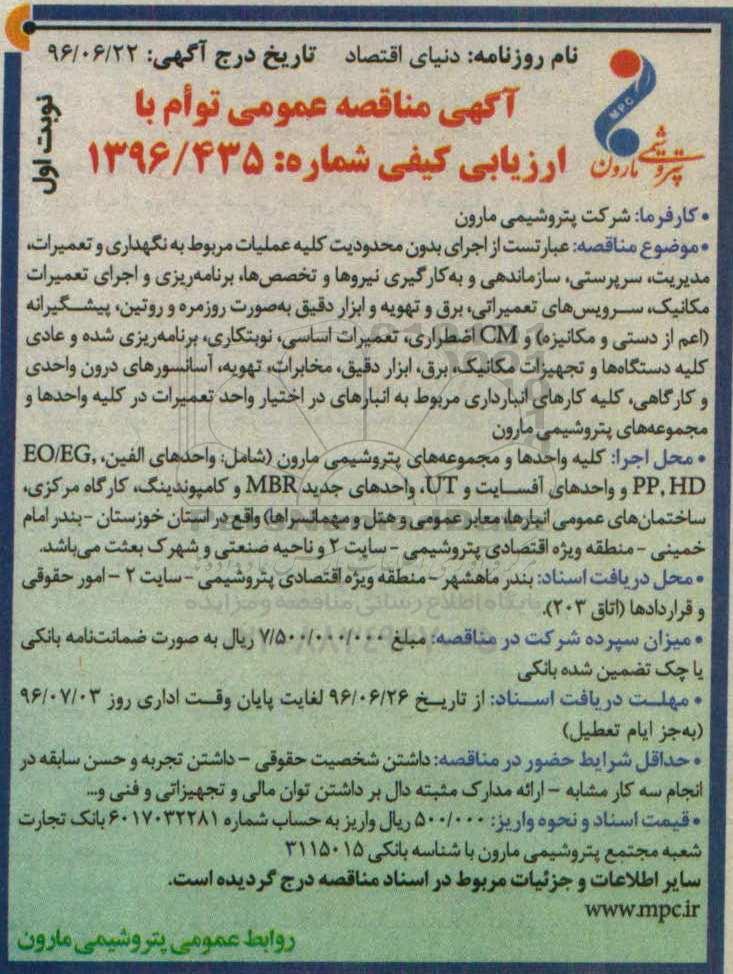 نام روزنامه: دنیای اقتصاد تاریخ درج آگهی: ۹۶/۰۶/۲۲
MPC
پتروشیمی مارون
نوبت اول
آگهی مناقصه عمومی توأم با
ارزیابی کیفی شماره: ۱۳۹۶/۴۳۵
• کارفرما: شرکت پتروشیمی مارون
• موضوع مناقصه: عبارتست از اجرای بدون محدودیت کلیه عملیات مربوط به نگهداری و تعمیرات،
مدیریت، سرپرستی، سازماندهی و به‌کارگیری نیروها و تخصص‌ها، برنامه‌ریزی و اجرای تعمیرات
مکانیک، سرویس‌های تعمیراتی، برق و تهویه و ابزار دقیق به‌صورت روزمره و روتین، پیشگیرانه
(اعم از دستی و مکانیزه) و CM اضطراری، تعمیرات اساسی، نوبتکاری، برنامه‌ریزی شده و عادی
کلیه دستگاه‌ها و تجهیزات مکانیک، برق، ابزار دقیق، مخابرات، تهویه، آسانسورهای درون واحدی
و کارگاهی، کلیه کارهای انبارداری مربوط به انبارهای در اختیار واحد تعمیرات در کلیه واحدها و
مجموعه‌های پتروشیمی مارون
• محل اجرا: کلیه واحدها و مجموعه‌های پتروشیمی مارون (شامل: واحدهای الفین، EO/EG,
PP, HD و واحدهای آفسایت و UT، واحدهای جدید MBR و کامپوندینگ، کارگاه مرکزی،
ساختمان‌های عمومی انبارها، معابر عمومی و هتل و مهمانسراها) واقع در استان خوزستان - بندر امام
خمینی - منطقه ویژه اقتصادی پتروشیمی - سایت ۲ و ناحیه صنعتی و شهرک بعثت می‌باشد.
• محل دریافت اسناد: بندر ماهشهر - منطقه ویژه اقتصادی پتروشیمی - سایت ۲ - امور حقوقی
و قراردادها (اتاق ۲۰۳).
• میزان سپرده شرکت در مناقصه: مبلغ ۷/۵۰۰/۰۰۰/۰۰۰ ریال به صورت ضمانت‌نامه بانکی
یا چک تضمین شده بانکی
• مهلت دریافت اسناد: از تاریخ ۹۶/۰۶/۲۶ لغایت پایان وقت اداری روز ۹۶/۰۷/۰۳
(به‌جز ایام تعطیل)
• حداقل شرایط حضور در مناقصه: داشتن شخصیت حقوقی - داشتن تجربه و حسن سابقه در
انجام سه کار مشابه - ارائه مدارک مثبته دال بر داشتن توان مالی و تجهیزاتی و فنی و...
• قیمت اسناد و نحوه واریز: ۵۰۰/۰۰۰ ریال واریز به حساب شماره ۶۰۱۷۰۳۲۲۸۱ بانک تجارت
شعبه مجتمع پتروشیمی مارون با شناسه بانکی ۳۱۱۵۰۱۵
سایر اطلاعات و جزئیات مربوط در اسناد مناقصه درج گردیده است.
www.mpc.ir
روابط عمومی پتروشیمی مارون